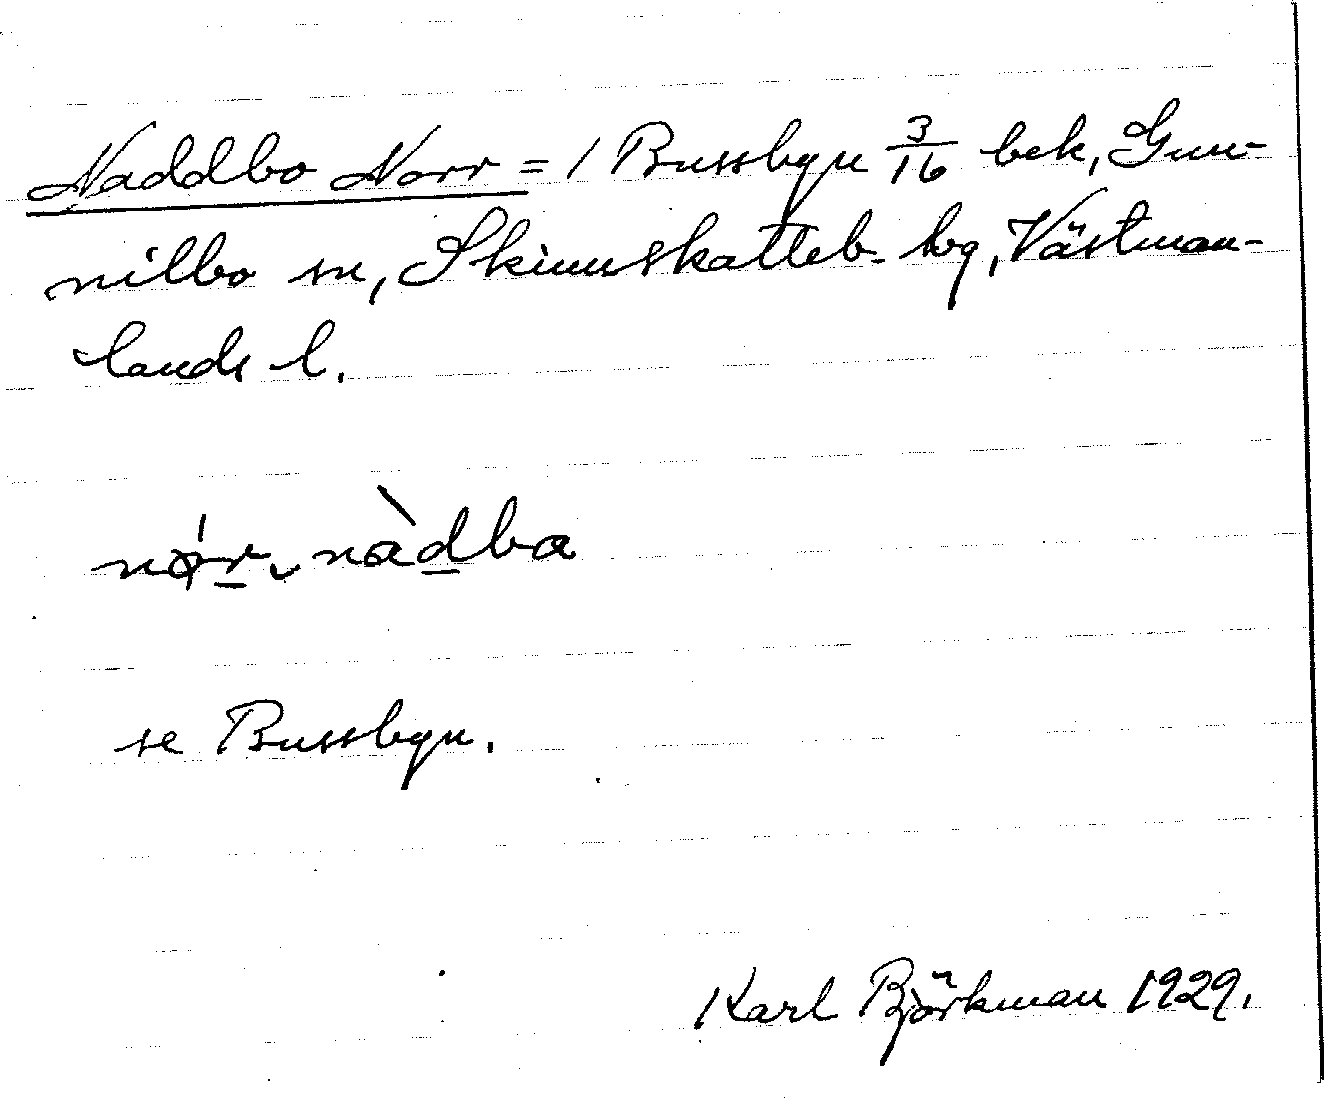 Naddbo Norr = 1 Bussbyn 3/16 bek, Gun-
nilbo sn, Skinnskatteb. tg, Västman-
lands l.
nǫ́r̲ ̬ nàd̲ba
se Bussbyn.
Karl Björkman 1929.